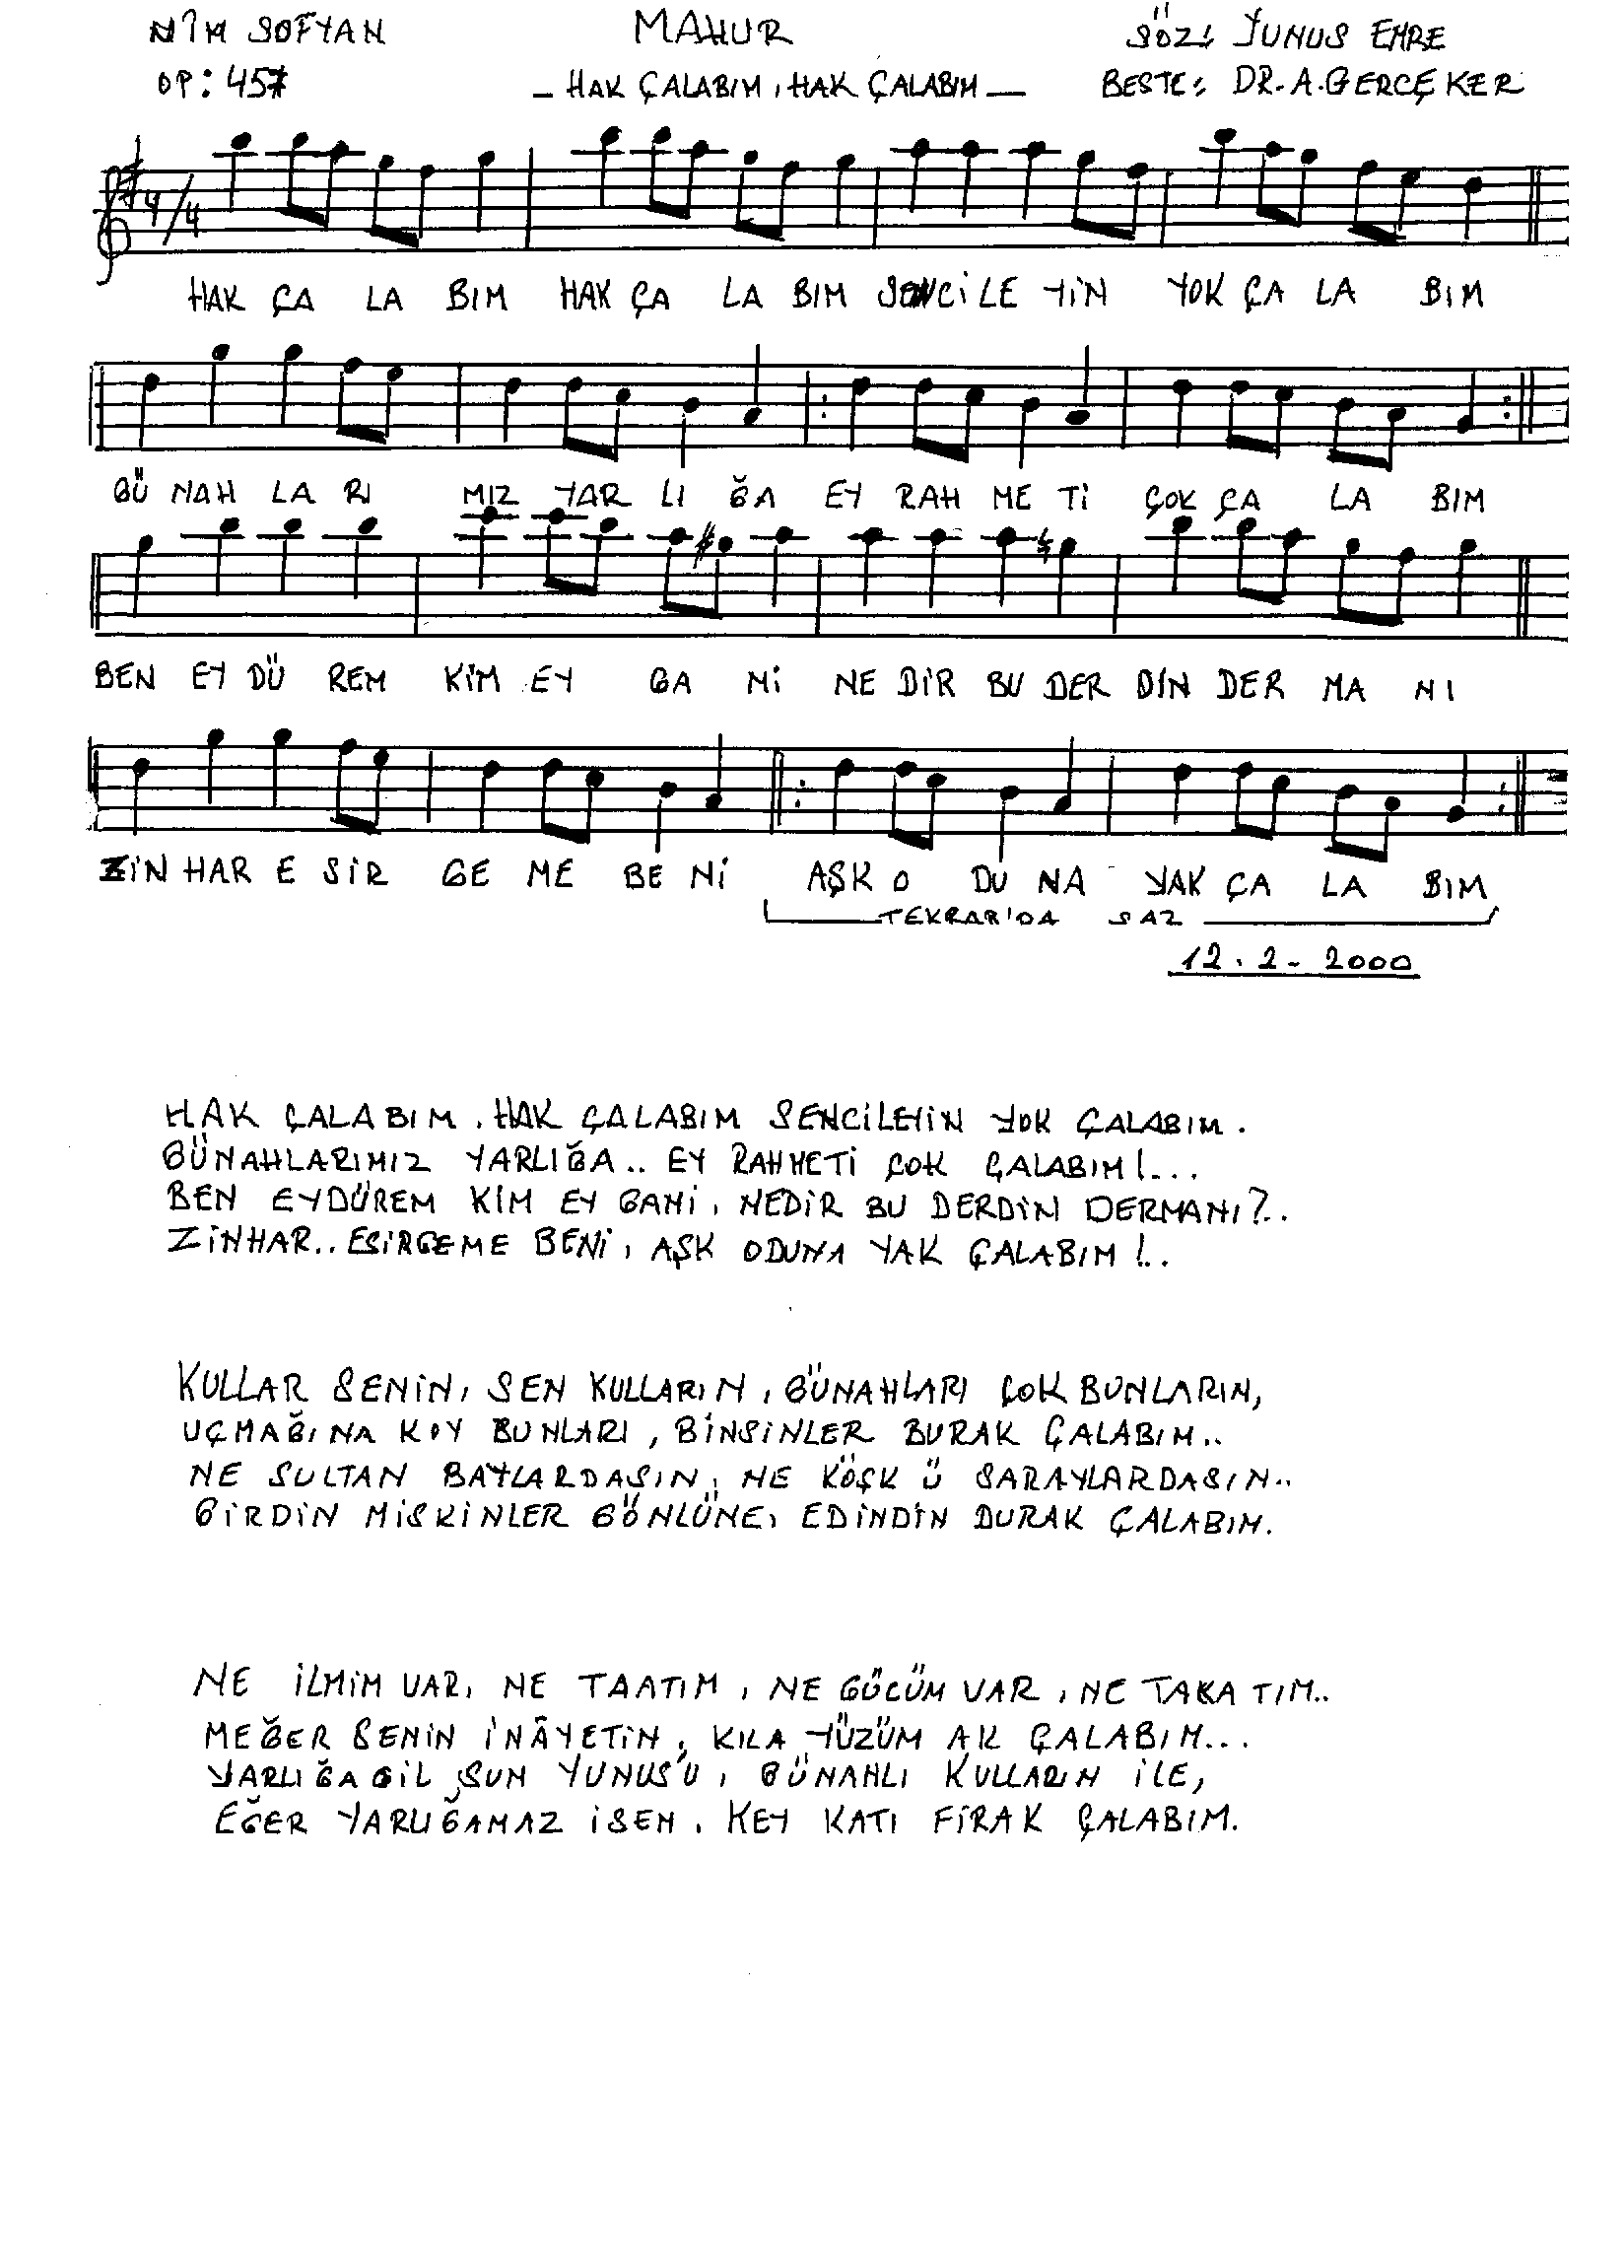 NİM SOFYAN MAHUR SÖZ: YUNUS EMRE
OP: 457 - HAK ÇALABIM, HAK ÇALABIM - BESTE: DR. A. GERÇEKER
4/4
HAK ÇA LA BIM HAK ÇA LA BIM SENCİ LE YİN YOK ÇA LA BIM
GÜ NAH LA RI MIZ YAR LI ĞA EY RAH ME Tİ ÇOK ÇA LA BIM
BEN EY DÜ REM KİM EY GA Nİ NE DİR BU DER DİN DER MA NI
ZİN HAR E SİR GE ME BE Nİ AŞK O DU NA YAK ÇA LA BIM
TEKRAR'DA SAZ
12.2-2000
HAK ÇALABIM, HAK ÇALABIM SENCİLEYİN YOK ÇALABIM.
GÜNAHLARIMIZ YARLIĞA.. EY RAHMETİ ÇOK ÇALABIM!...
BEN EYDÜREM KİM EY GANİ, NEDİR BU DERDİN DERMANI?..
ZİNHAR.. ESİRGEME BENİ, AŞK ODUNA YAK ÇALABIM!..
KULLAR SENİN, SEN KULLARIN, GÜNAHLARI ÇOK BUNLARIN,
UÇMAĞINA KOY BUNLARI, BİNSİNLER BURAK ÇALABIM..
NE SULTAN BAYLARDASIN, NE KÖŞK Ü SARAYLARDASIN..
GİRDİN MİSKİNLER GÖNLÜNE, EDİNDİN DURAK ÇALABIM.
NE İLMİM VAR, NE TAATIM, NE GÜCÜM VAR, NE TAKATIM..
MEĞER SENİN İNÂYETİN, KILA YÜZÜM AK ÇALABIM...
YARLIĞAGİL ŞUN YUNUS'U, GÜNAHLI KULLARIN İLE,
EĞER YARLIĞAMAZ İSEN, KEY KATI FİRAK ÇALABIM.